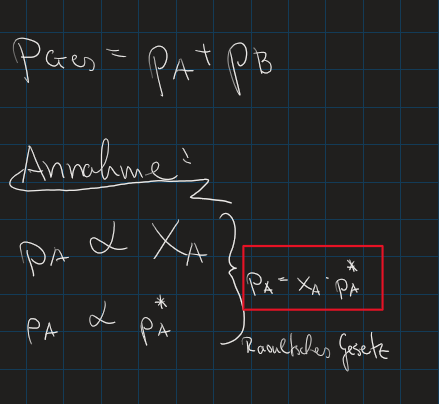 pGes = pA + pB
Annahme:
pA ∝ XA
pA ∝ pA*
pA = xA · pA*
Raoultsches Gesetz